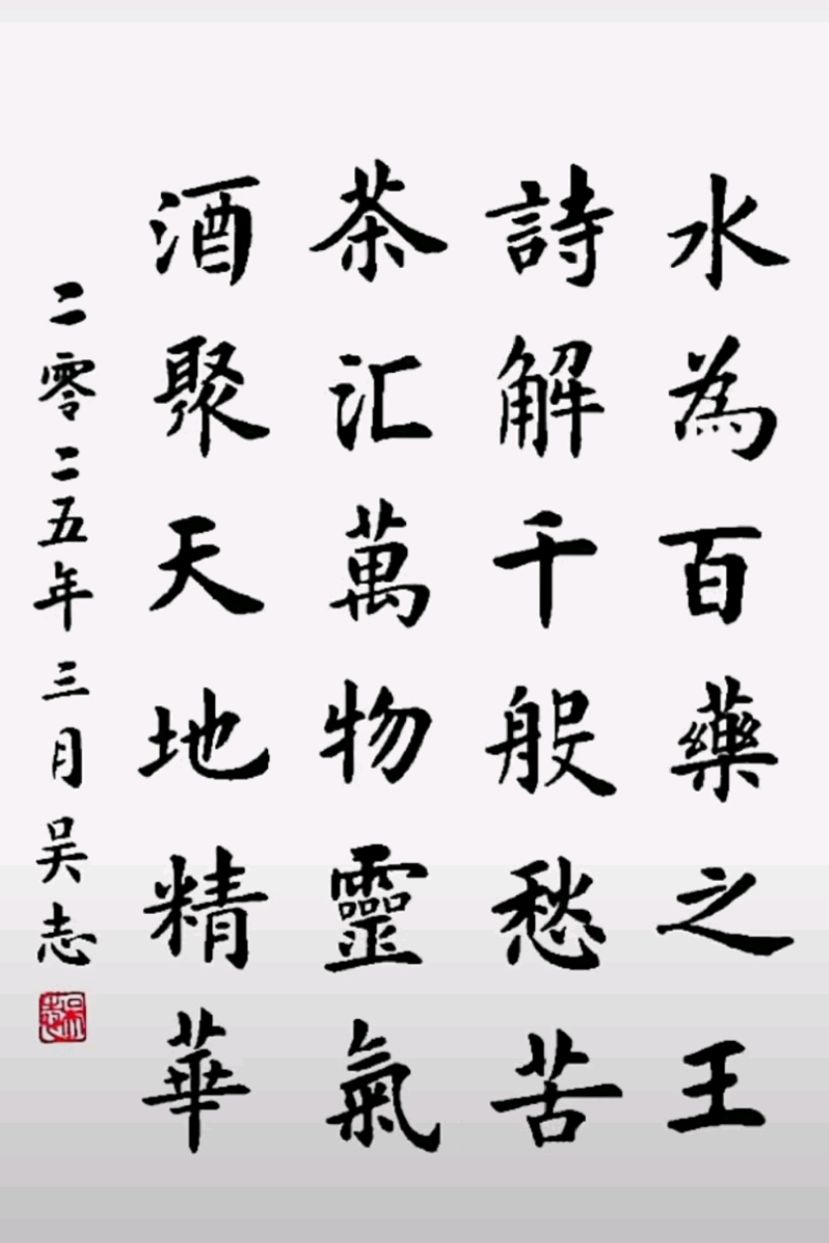 水為百藥之王
詩解千般愁苦
茶汇萬物靈氣
酒聚天地精華
二零二五年三月吴志
吴志